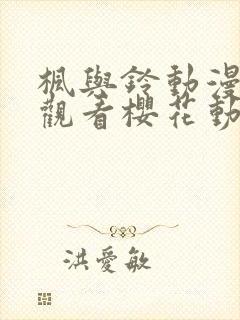 楓與鈴動漫
觀看櫻花動
洪愛敏